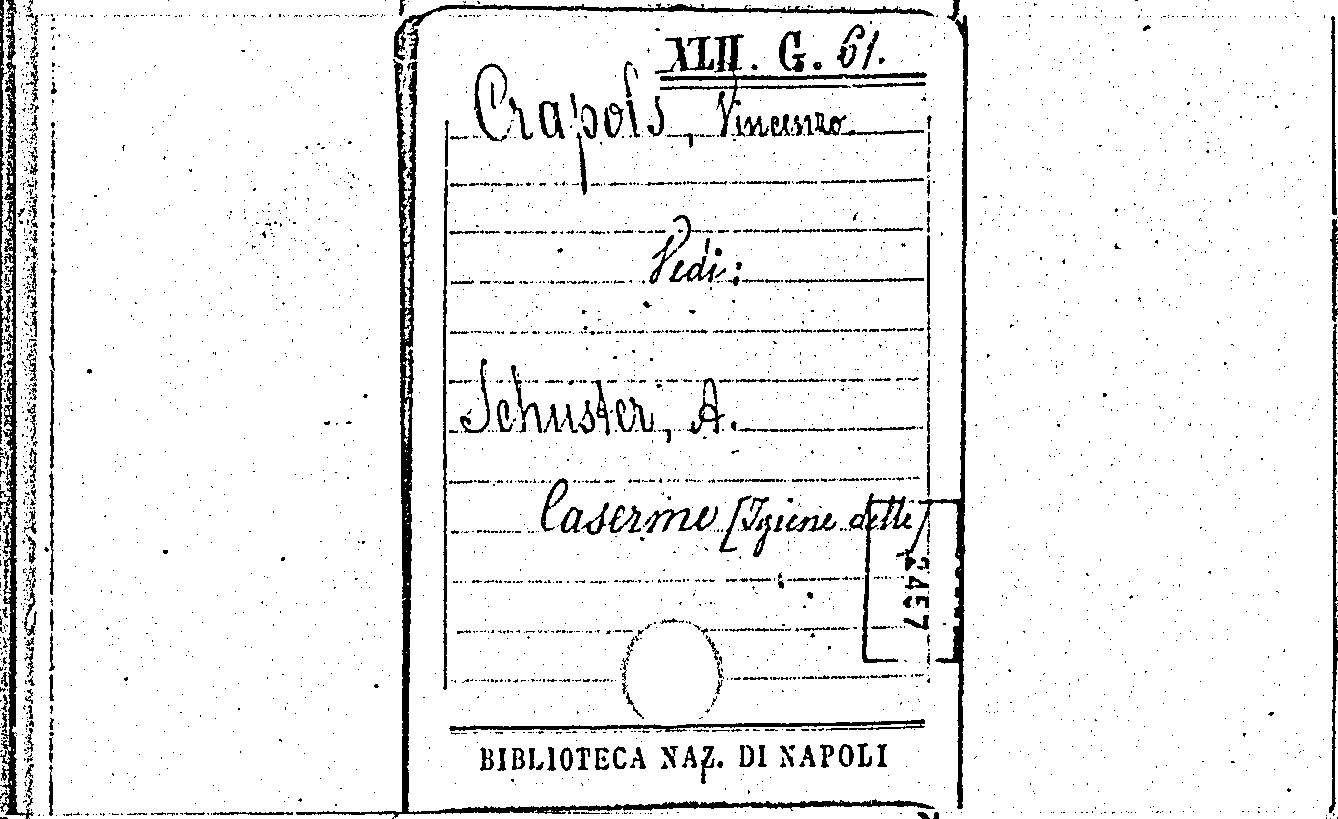 XLII. G. 61.
Crapols, Vincenzo
Vedi:
Schuster, A.
Caserme [Igiene delle]
BIBLIOTECA NAZ. DI NAPOLI